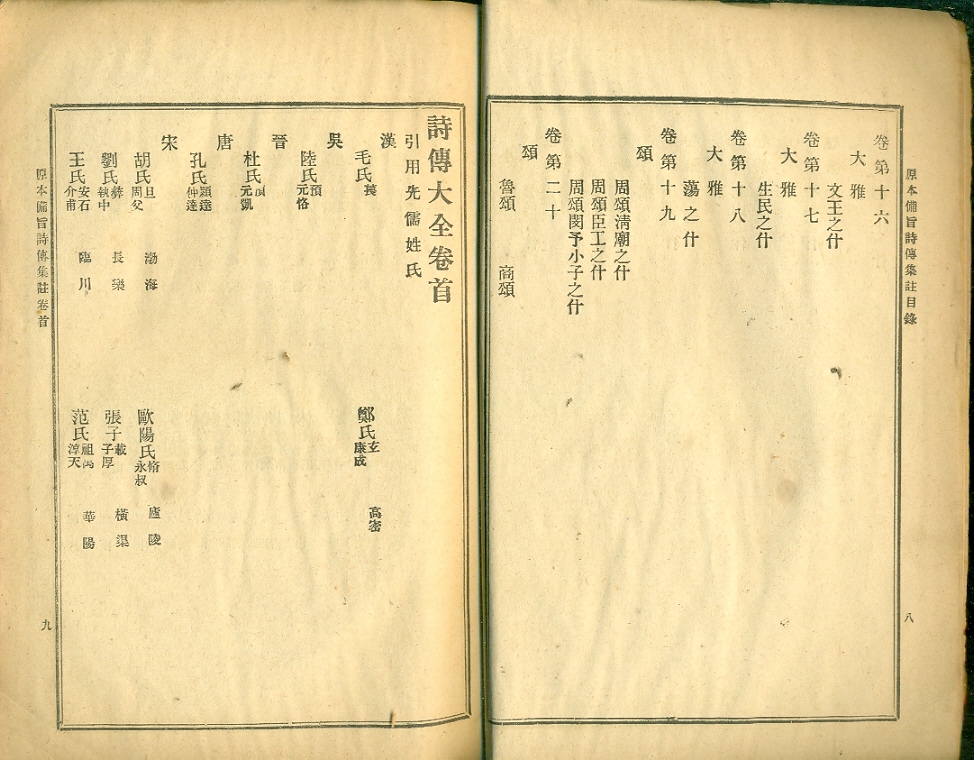 原本備旨詩傳集註目錄
八
卷第十六
大雅
文王之什
卷第十七
大雅
生民之什
卷第十八
大雅
蕩之什
卷第十九
頌
周頌清廟之什
周頌臣工之什
周頌閔予小子之什
卷第二十
頌
魯頌 商頌
詩傳大全卷首
引用先儒姓氏
漢
毛氏萇 鄭氏玄康成 高密
吳
陸氏元恪
晉
杜氏元凱
唐
孔氏穎達仲達
宋
胡氏旦周父 渤海 歐陽氏脩永叔 廬陵
劉氏彝執中 長樂 張子載子厚 橫渠
王氏安石介甫 臨川 范氏祖禹淳夫 華陽
原本備旨詩傳集註卷首
九